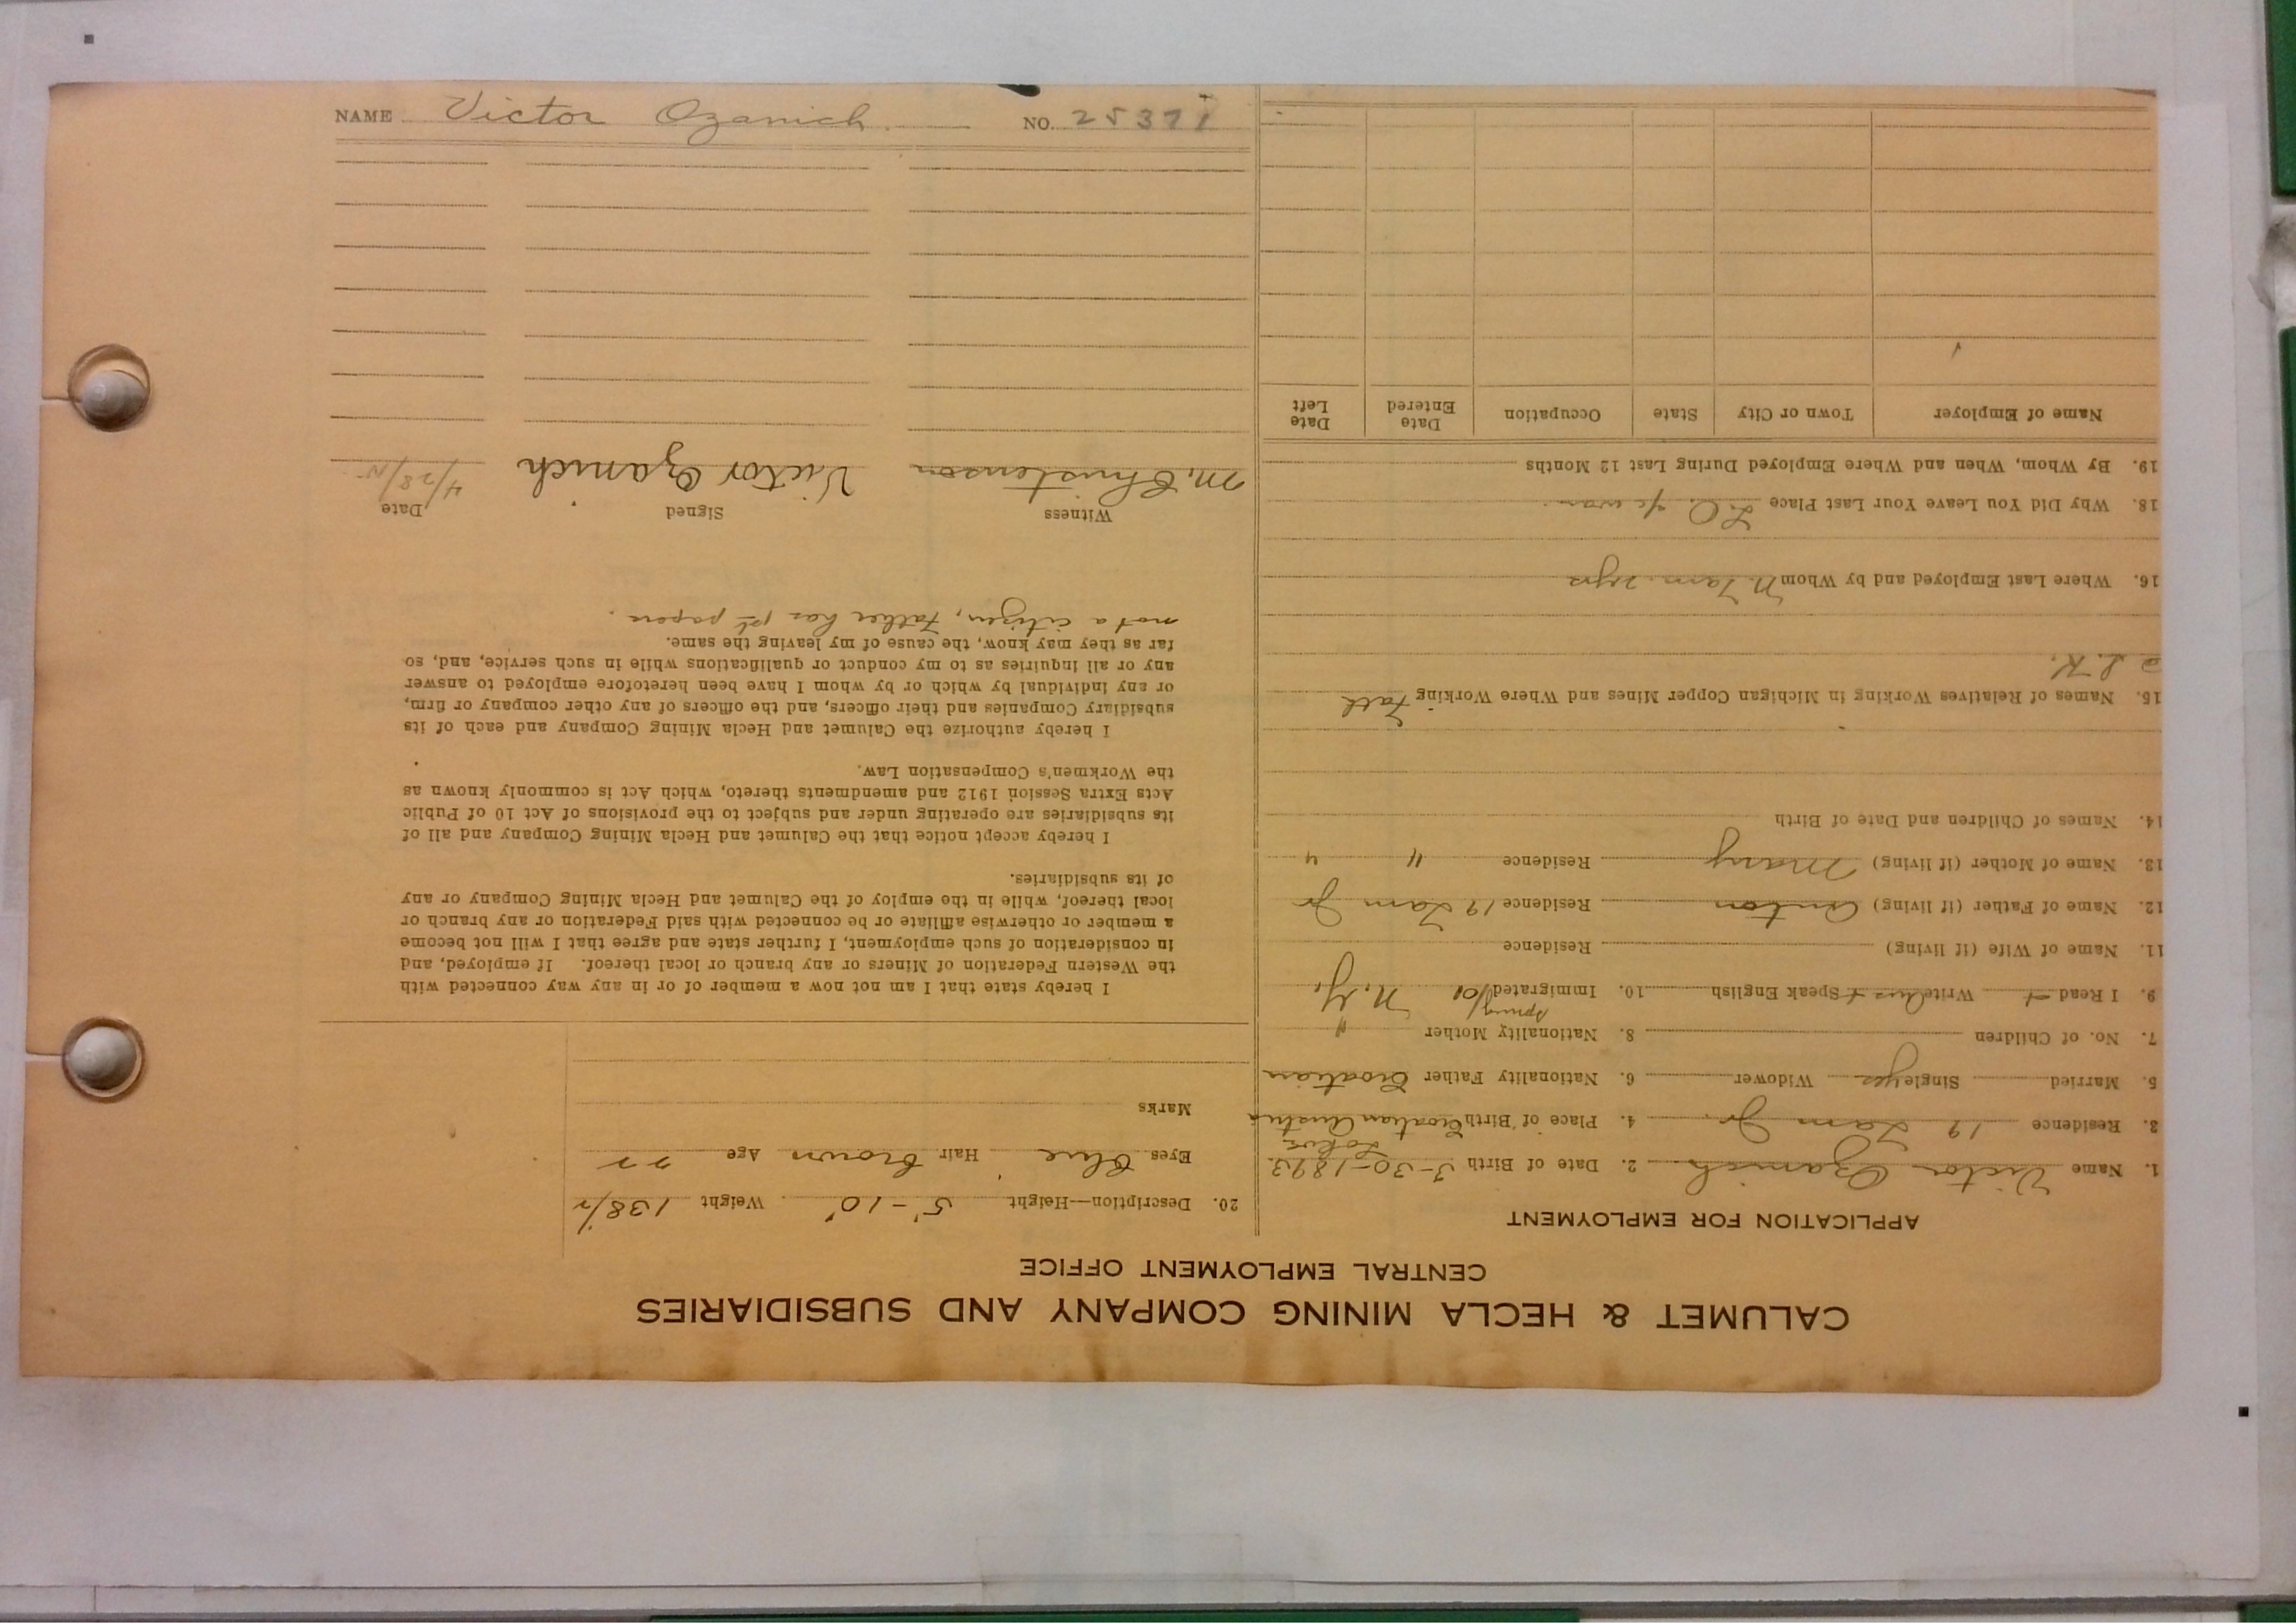 CALUMET & HECLA MINING COMPANY AND SUBSIDIARIES
CENTRAL EMPLOYMENT OFFICE
APPLICATION FOR EMPLOYMENT
1. Name Victor Ozanich 2. Date of Birth 3-30-1893
3. Residence 19 Tam Jr. 4. Place of Birth Croatian Austria
5. Married Single yes Widower 6. Nationality Father Croatian
7. No. of Children 8. Nationality Mother "
9. I Read + Write + Speak English 10. Immigrated Spring/01 N.Y.
11. Name of Wife (if living) Residence
12. Name of Father (if living) Anton Residence 19 Tam Jr
13. Name of Mother (if living) Mary Residence " "
14. Names of Children and Date of Birth
15. Names of Relatives Working in Michigan Copper Mines and Where Working Fath
16. Where Last Employed and by Whom
18. Why Did You Leave Your Last Place
19. By Whom, When and Where Employed During Last 12 Months
Name of Employer Town or City State Occupation Date Entered Date Left
20. Description—Height 5'-10" Weight 138½
Eyes Blue Hair Brown Age 22
Marks
I hereby state that I am not now a member of or in any way connected with
the Western Federation of Miners or any branch or local thereof. If employed, and
in consideration of such employment, I further state and agree that I will not become
a member or otherwise affiliate or be connected with said Federation or any branch or
local thereof, while in the employ of the Calumet and Hecla Mining Company or any
of its subsidiaries.
I hereby accept notice that the Calumet and Hecla Mining Company and all of
its subsidiaries are operating under and subject to the provisions of Act 10 of Public
Acts Extra Session 1912 and amendments thereto, which Act is commonly known as
the Workmen's Compensation Law.
I hereby authorize the Calumet and Hecla Mining Company and each of its
subsidiary Companies and their officers, and the officers of any other company or firm,
or any individual by which or by whom I have been heretofore employed to answer
any or all inquiries as to my conduct or qualifications while in such service, and, so
far as they may know, the cause of my leaving the same.
not a citizen, Father has 1st papers.
Witness Signed Date
M. Christenson Victor Ozanich 4/28/15
NAME Victor Ozanich. NO. 25371